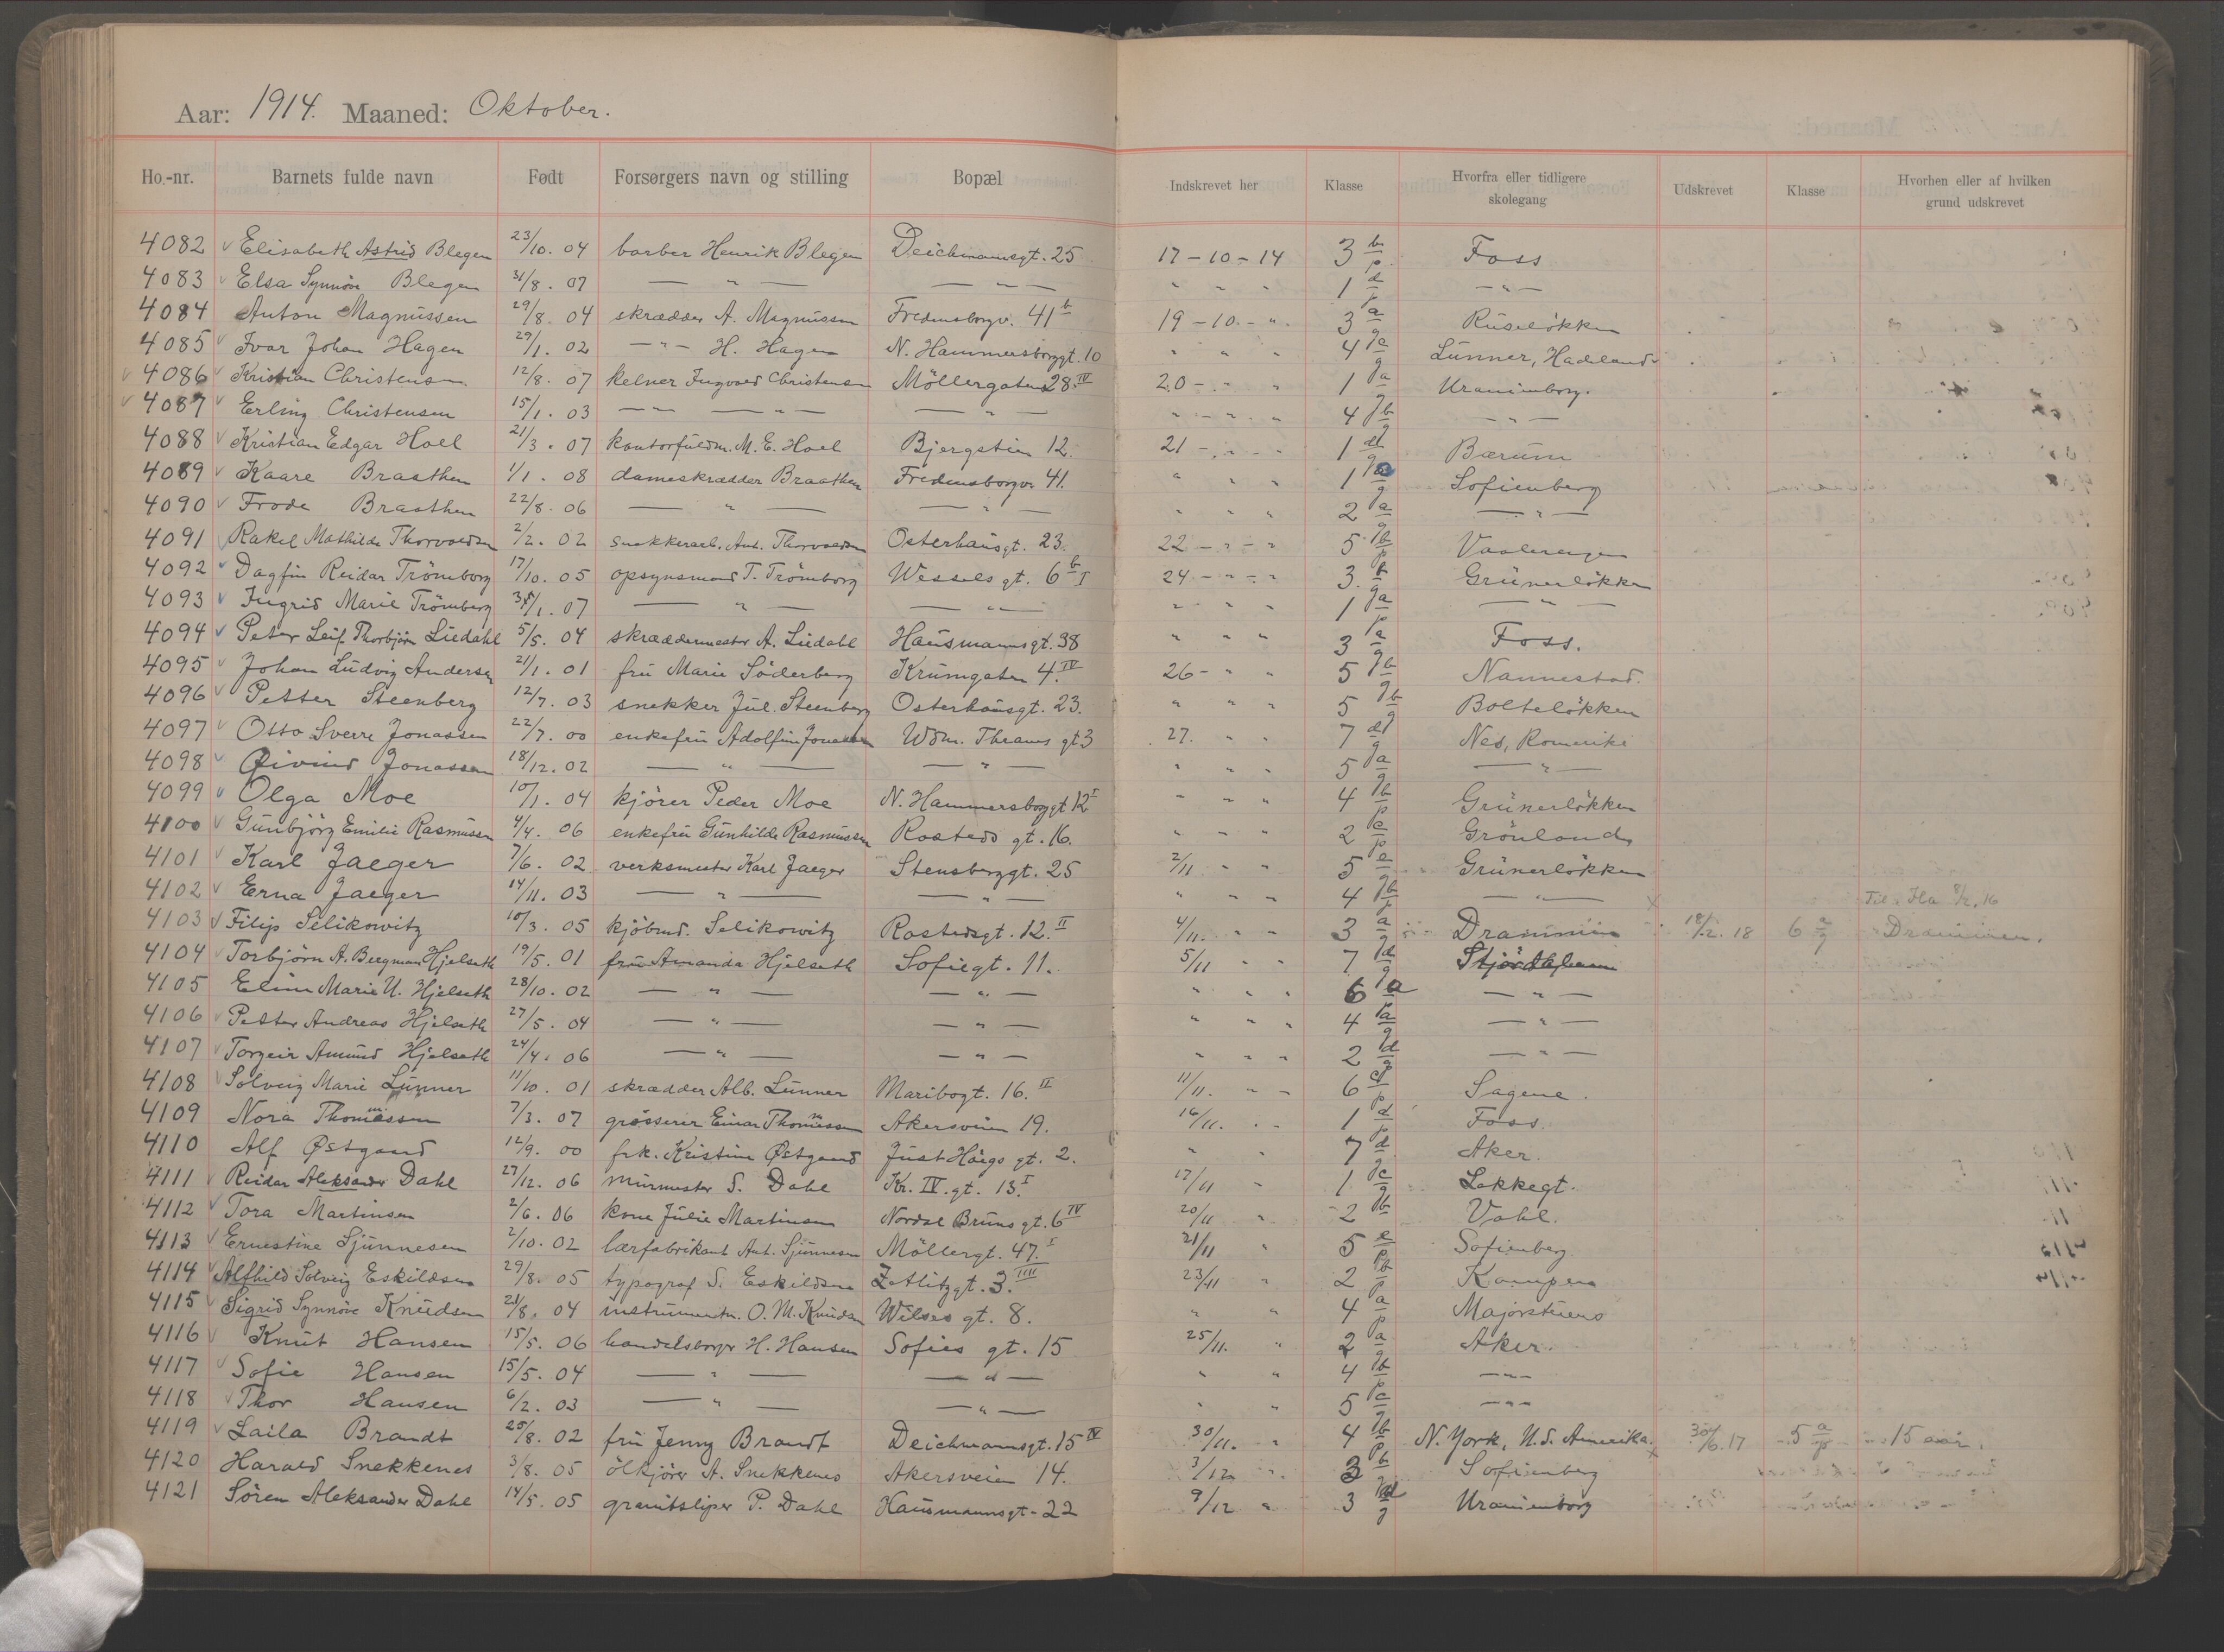 Aar: 1914. Maaned: Oktober.
Ho.-nr. Barnets fulde navn Født Forsørgers navn og stilling Bopæl Indskrevet her Klasse Hvorfra eller tidligere skolegang Udskrevet Klasse Hvorhen eller af hvilken grund udskrevet
4082 Elisabeth Astrid Blegen 23/10. 04 barber Henrik Blegen Deichmansgt. 25 17-10-14 3 b/p Foss
4083 Elsa Synnöve Blegen 31/8. 07 — " — — " — " " " 1 d/p — " —
4084 Anton Magnussen 29/8. 04 skrædder A. Magnussen Fredensborgv. 41 b 19-10-" 3 a/g Ruseløkken
4085 Ivar Johan Hagen 29/1. 02 — " — H. Hagen N. Hammersborggt. 10 " " " 4 c/g Lunner, Hadeland
4086 Kristian Christensen 12/8. 07 kelner Ingvald Christensen Möllergaten 28. IV 20-"-" 1 a/g Uranienborg.
4087 Erling Christensen 15/1. 03 — " — — " — — " — " " " 4 b/g — " —
4088 Kristian Edgar Hoel 21/3. 07 kontorfuldm. M. E. Hoel Bjergstien 12. 21-"-" 1 d/g Bærum
4089 Kaare Braathen 1/1. 08 dameskrædder Braathen Fredensborgv. 41. " " " 1 /g Sofienberg
4090 Frode Braathen 22/8. 06 — " — — " — " " " 2 a/g — " —
4091 Rakel Mathilde Thorvaldsen 2/2. 02 snekkerarb. Ant. Thorvaldsen Osterhausgt. 23. 22-"-" 5 b/p Vaalerengen
4092 Dagfin Reidar Trömborg 17/10. 05 opsynsmand T. Trömborg Wessels gt. 6 b I 24-"-" 3 b/g Grünerløkken
4093 Ingrid Marie Trömborg /1. 07 — " — — " — " " " 1 a/p — " —
4094 Peter Leif Thorbjörn Liedahl 5/5. 04 skræddermester A. Liedahl Hausmannsgt. 38 " " " 3 a/g Foss.
4095 Johan Ludvig Andersen 21/1. 01 fru Marie Söderberg Krumgaten 4. IV 26-" " 5 b/g Nannestad.
4096 Petter Steenberg 12/7. 03 snekker Jul. Steenberg Osterhausgt. 23. " " " 5 b/g Bolteløkken
4097 Otto Sverre Jonassen 22/7. 00 enkefru Adolfine Jonassen Wdm. Thranes gt 3 27. " " 7 d/g Ned, Romerike
4098 Øivind Jonassen 18/12. 02 — " — — " — " " " 5 a/g — " —
4099 Olga Moe 10/1. 04 kjörer Peder Moe N. Hammersborggt 12 I " " " 4 b/p Grünerløkken
4100 Gunbjörg Emilie Rasmussen 4/4. 06 enkefru Gunhilde Rasmussen Rosteds gt. 16. " " " 2 c/p Grönland
4101 Karl Jaeger 7/6. 02 verksmester Karl Jaeger Stensberggt. 25 2/11 " " 5 e/g Grünerløkken
4102 Erna Jaeger 14/11. 03 — " — — " — " " " 4 b/p — " —
4103 Filip Selikowitz 10/3. 05 kjöbmd. Selikowitz Rostedsgt. 12. II 4/11. " " 3 a/g Drammen 18/2. 18 6 a/g Til Ila 16 Drammen.
4104 Torbjörn A. Bergman Hjelseth 19/5. 01 fru Amanda Hjelseth Sofiegt. 11. 5/11 " " 7 d/g
4105 Eline Marie U. Hjelseth 28/10. 02 — " — — " — " " " 6 a — " —
4106 Petter Andreas Hjelseth 27/5. 04 — " — — " — " " " 4 a/g — " —
4107 Torgeir Amund Hjelseth 24/4. 06 — " — — " — " " " 2 d/g — " —
4108 Solveig Marie Lunner 11/10. 01 skrædder Alb. Lunner Maribogt. 16. II 11/11. " " 6 c/p Sagene.
4109 Nora Thomassen 7/3. 07 grosserer Einar Thomassen Akersveien 19. 16/11. " " 1 d/p Foss.
4110 Alf Østgaard 12/9. 00 frk. Kristine Østgaard Just Høegs gt. 2. " " 7 d/g Aker.
4111 Reidar Aleksander Dahl 27/12. 06 murmester S. Dahl Kr. IV. gt. 13. I 17/11 " 1 c/g Lakkegt.
4112 Tora Martinsen 2/6. 06 kone Julie Martinsen Nordal Bruns gt. 6 IV 20/11 " 2 b Vahl.
4113 Ernestine Sjunnesen 2/10. 02 lærfabrikant Ant. Sjunnesen Möllergt. 47. I 21/11 " 5 e/p Sofienberg.
4114 Alfhild Solveig Eskildsen 29/8. 05 typograf S. Eskildsen Zetlitzgt. 3. IIII 23/11 " 2 b/p Kampen
4115 Sigrid Synnöve Knudsen 21/8. 04 instrumentm. O. M. Knudsen Wilses gt. 8. " " 4 a/p Majorstuens
4116 Knut Hansen 15/5. 06 handelsborger H. Hansen Sofies gt. 15 25/11. " 2 a/g Aker.
4117 Sofie Hansen 15/5. 04 — " — — " — " " 4 b/p — " —
4118 Thor Hansen 6/2. 03 — " — — " — " " 5 c/g — " —
4119 Laila Brandt 25/8. 02 fru Jenny Brandt Deichmannsgt. 15 IV 30/11. " 4 b/p N. York, U. S. Amerika. 30/6. 17 5 a/p 15 aar.
4120 Harald Snekkenes 3/8. 05 ölkjörer A. Snekkenes Akersveien 14. 3/12 " 3 b/g Sofienberg
4121 Sören Aleksander Dahl 14/5. 05 granitsliper P. Dahl Hausmannsgt. 22 9/12 " 3 d/g Uranienborg